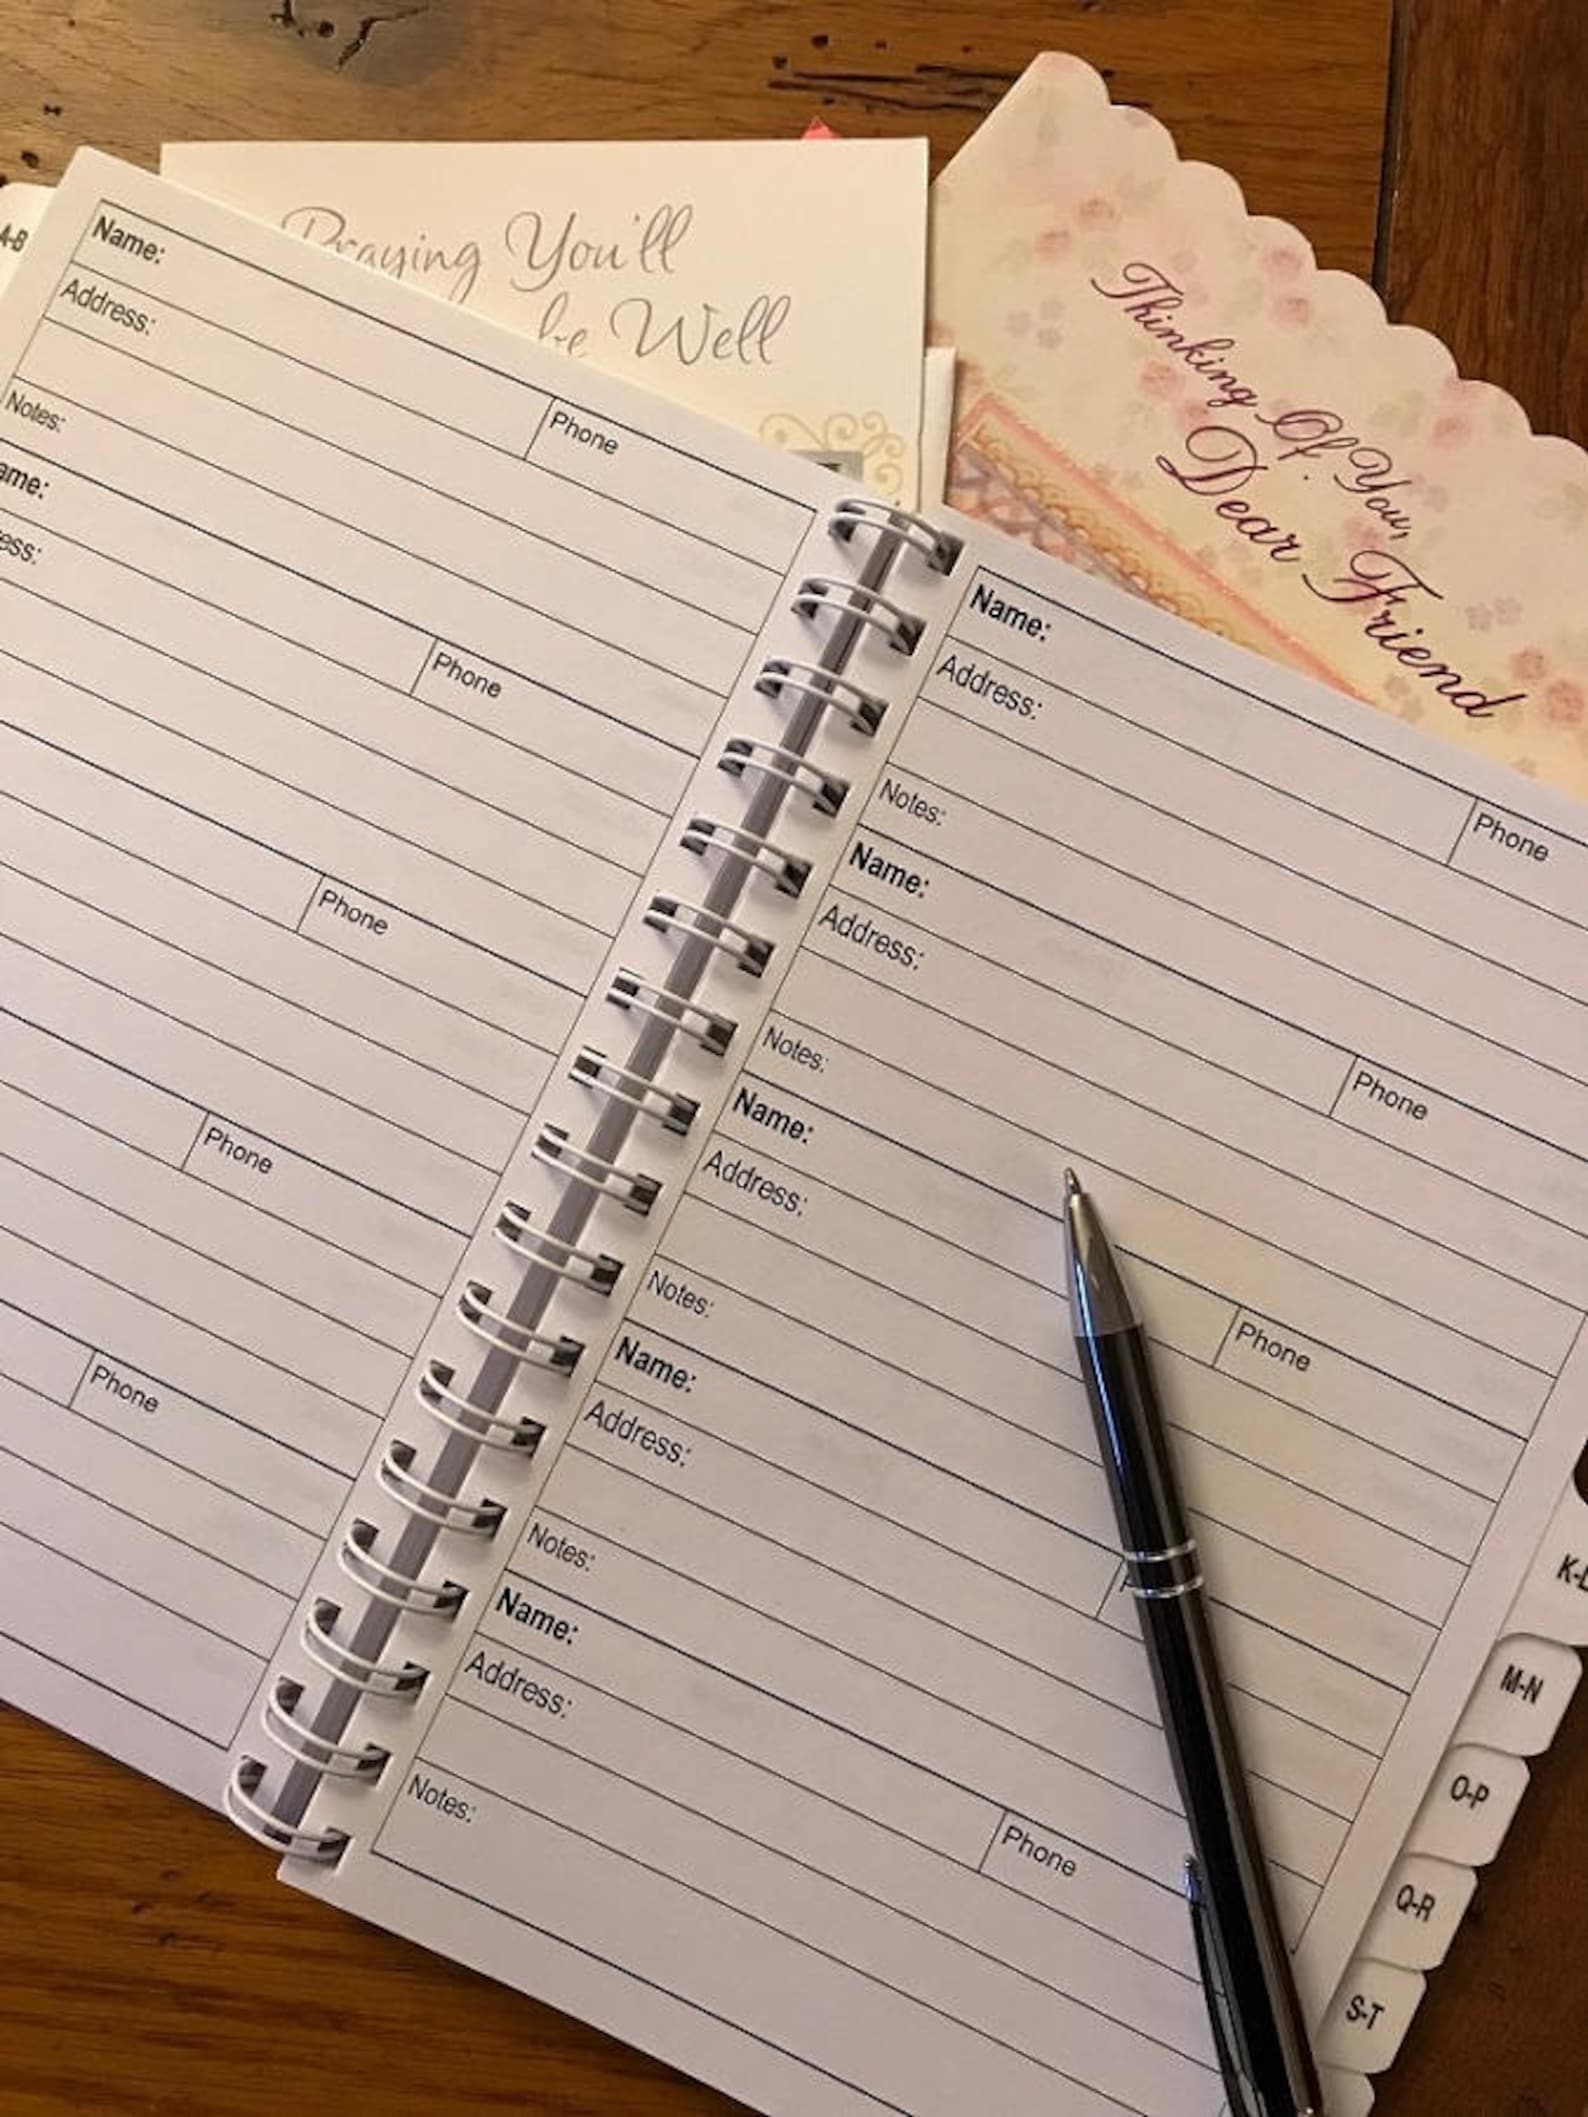 Praying You'll
be Well
Thinking Of You,
Dear Friend
A-B
Name:
Phone
Address:
Notes:
ame:
Phone
ess:
Phone
Phone
Phone
Name:
Phone
Address:
Notes:
Name:
Phone
Address:
Notes:
Name:
Phone
Address:
Notes:
Name:
Address:
Notes:
Name:
Phone
Address:
Notes:
K-L
M-N
O-P
Q-R
S-T